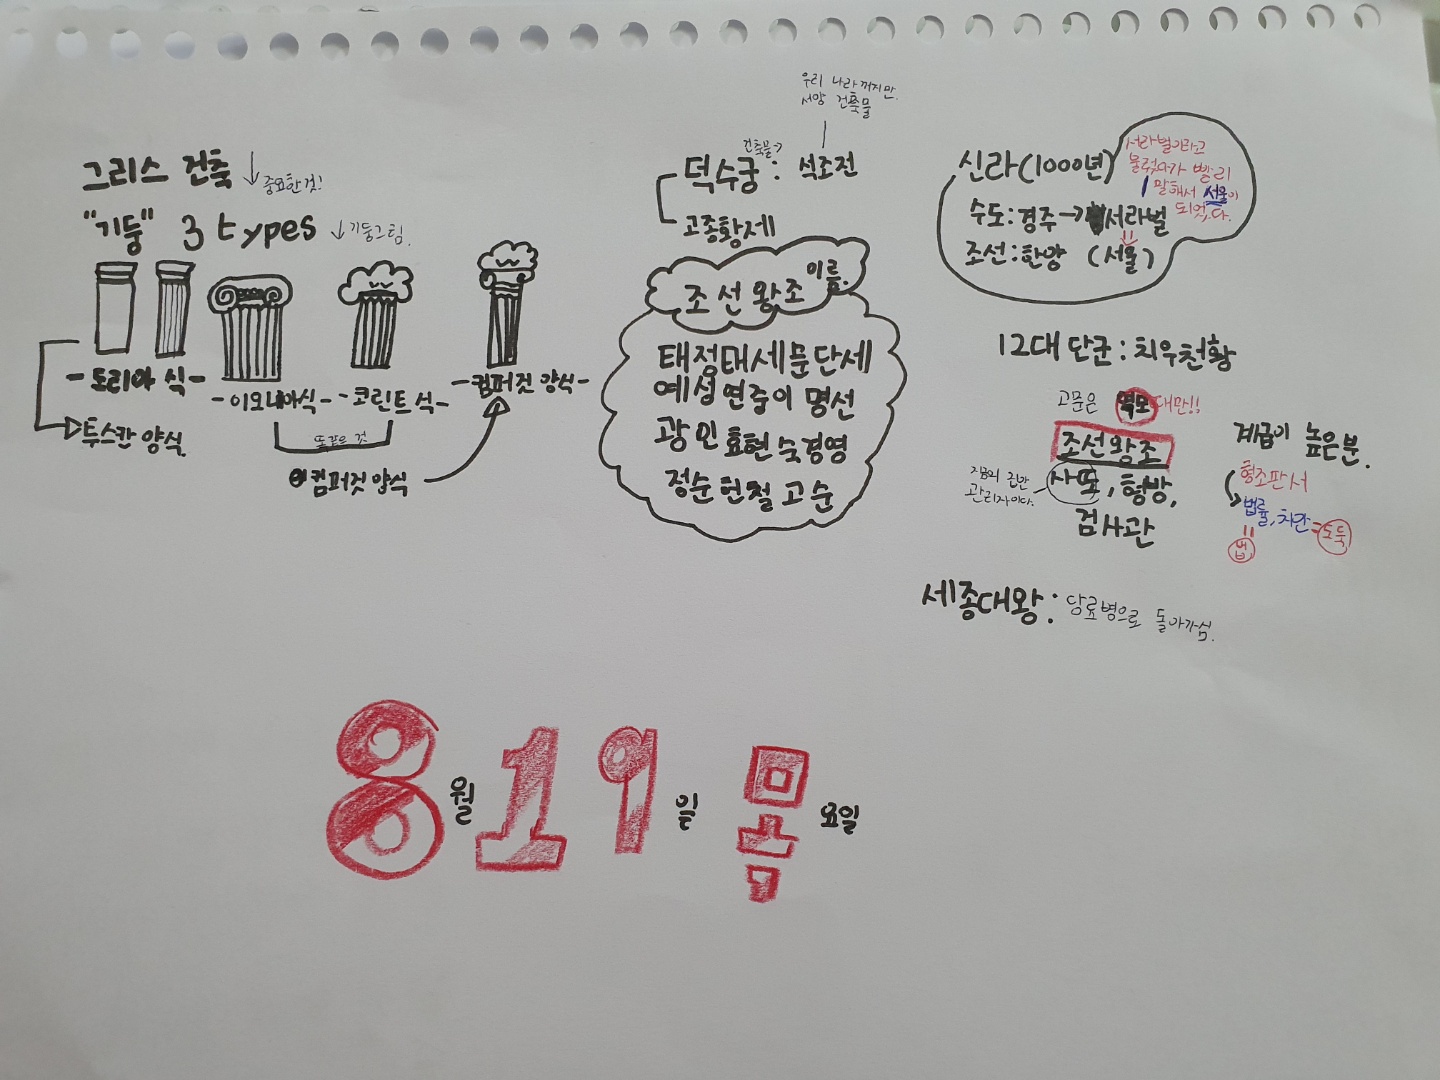 그리스 건축
↓ 중요한것!
"기둥" 3 types
↓기둥그림.
-도리아 식-
-이오니아식-
-코린트 식-
-컴퍼짓 양식-
→투스칸 양식
똑같은 것
컴퍼짓 양식
우리 나라 꺼지만.
서양 건축물
건축물→
덕수궁: 석조전
고종황제
조선왕조 이름.
태정태세문단세
예성연중인명선
광인효현숙경영
정순헌철고순
신라(1000년)
수도:경주→서라벌
조선:한양 (서울)
서라벌이라고
불렀다가 빨리
말해서 서울이
되었다.
12대 단군: 치우천황
고문은 역모 대만!!
조선왕조
사또, 형방,
검사관
지금의 군반
관리자이다.
계급이 높은분.
형조판서
법률, 치안=도둑
법
세종대왕: 당료병으로 돌아가심.
8월 19일 목요일